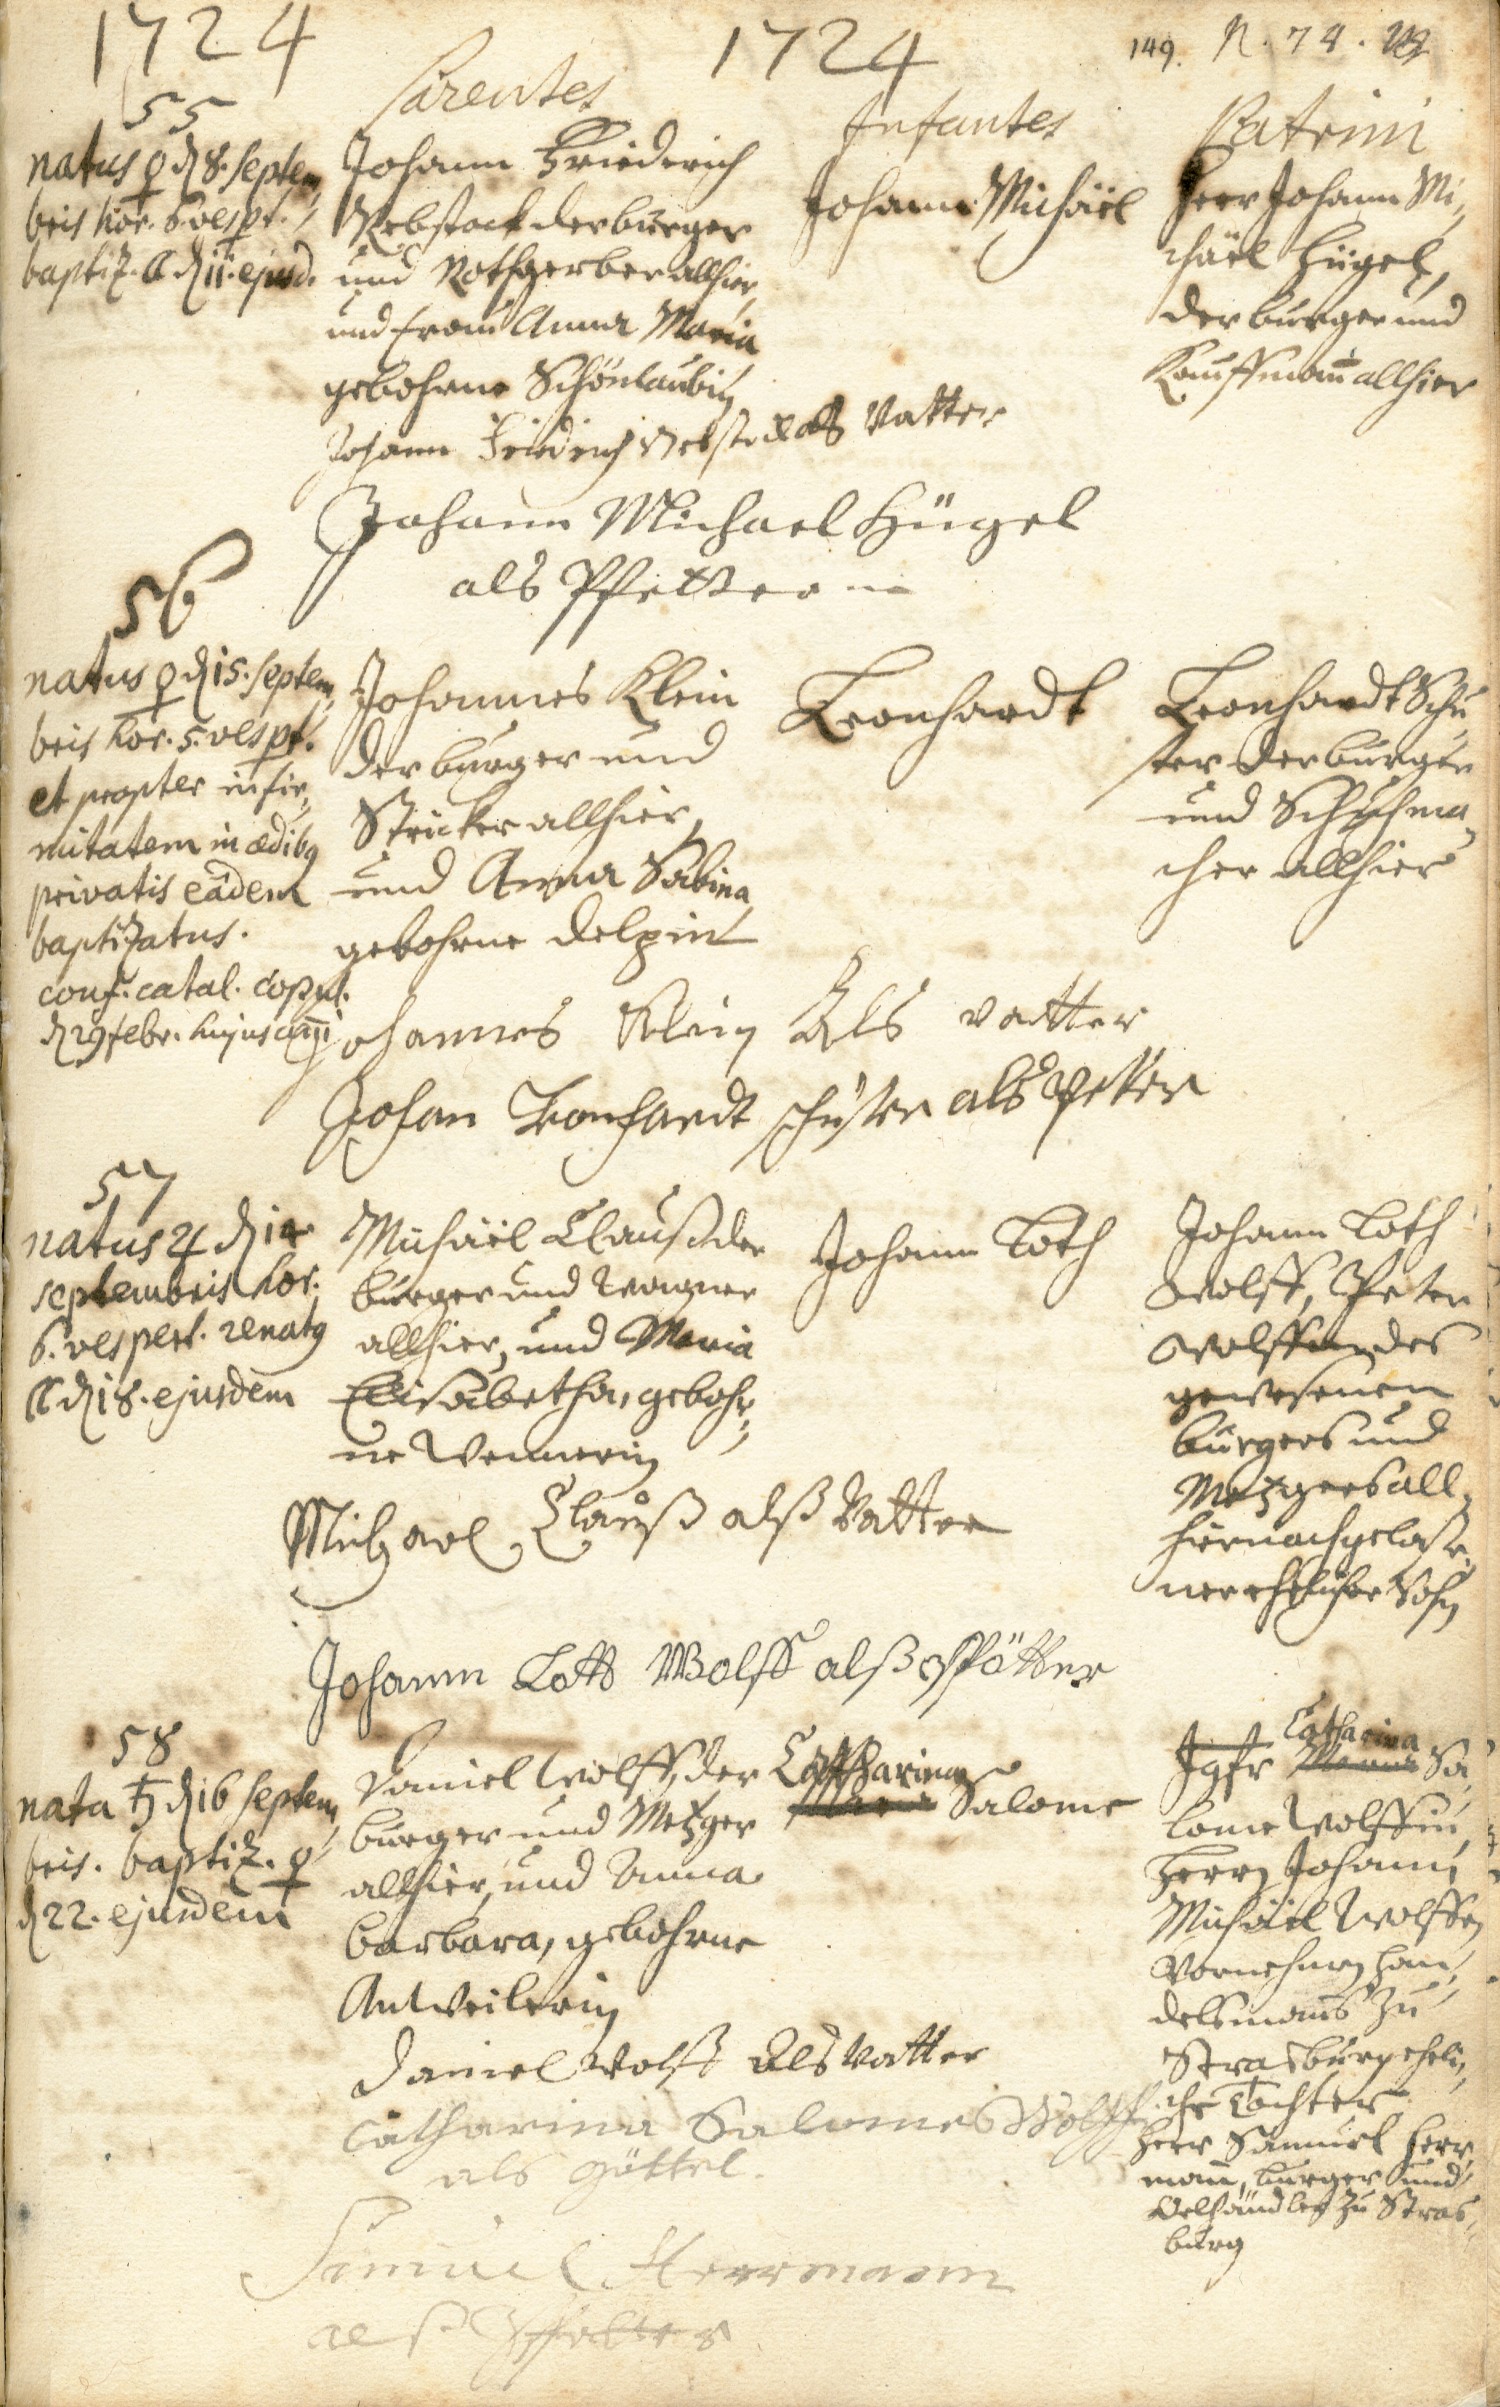 1724
1724
149. N. 74.
Parentes
Infantes
Patrini
55
natus ♀ d 8. Septem,
bris hor. 6. vespt.
baptiz. d 11. ejusd.
Johann Friederich
Rebstock der burger
und Rothgerber allhier
und frau Anna Maria
gebohrne Schönlaubin
Johann Michäel
Herr Johann Mi,
chäel Hügel,
der burger und
Kauffmañ allhier
Johann Fridrich Rebstock als Vatter
Johann Michael Hügel
als Pfetter
56
natus ♀ d 15. Septem,
bris hor. 5. vespt.
et propter infir,
mitatem in ædibg
privatis eâdem
baptizatus.
conf. catal. copul.
d 29 febr. hujus añi
Johannes Klein
der burger und
Stricker allhier,
und Anna Sabina
gebohrne Delpin
Leonhardt
Leonhardt Schu
ster der burger
und Schuhma,
cher allhier
Johannes Klein Als vatter
Johan Leonhardt schuster als Petter
57
natus ♃ d 14
Septembris hor.
6. vespert. renatg
d 18. ejusdem
Michäel Clauß der
burger und Wagner
allhier, und Maria
Elisabetha, gebohr,
ne Wennerin
Johann Loth
Johann Loth
Wolff, Peter
Wolffen des
gewesenen
burgers und
Metzgers all,
hier nachgelaße,
ner ehelicher Sohn
Michael Clauß alß Vatter
Johann Lott Wolff alß Pfötter
58
nata ♄ d 16 Septem,
bris. baptiz. ♀
d 22. ejusdem
Daniel Wolff, der
burger und Metzger
allhier, und Anna
barbara, gebohrne
Antweilerin
Catharina
Maria Salome
Jgfr Catharina
Maria Sa,
lome Wolffin,
Herrn Johann
Michäel Wolffen
Vornehmen Han,
delsmañs zu
Strasburg eheli,
che Tochter
Herr Samuel Herr,
mañ, burger und
Oelhändler zu Stras,
burg
Daniel Wolff Als Vatter
Catharina Salome Wolffin
als göttel.
Samuel Herrmann
alß Pfetter